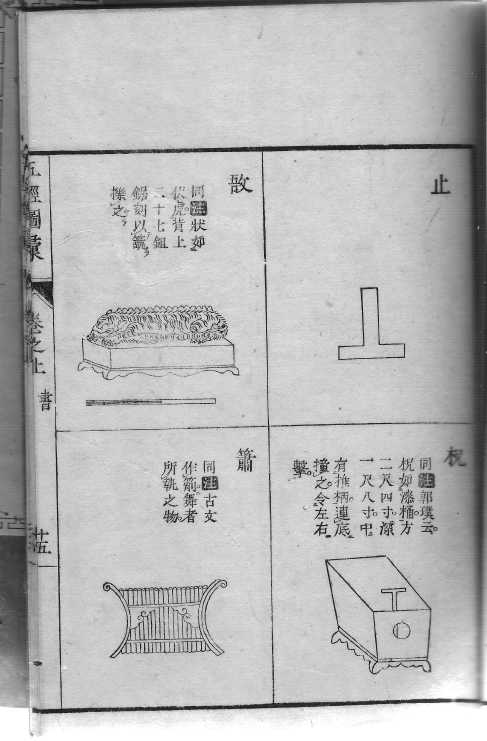 止
柷
同注郭璞云
柷如漆桶方
二尺四寸深
一尺八寸中
有椎柄連底
撞之令左右
擊
敔
同注狀如
伏虎背上
二十七鉏
鋙刻以籈
擽之
簫
同注古文
作箾舞者
所執之物
五經圖彙
卷之上
書
廿五